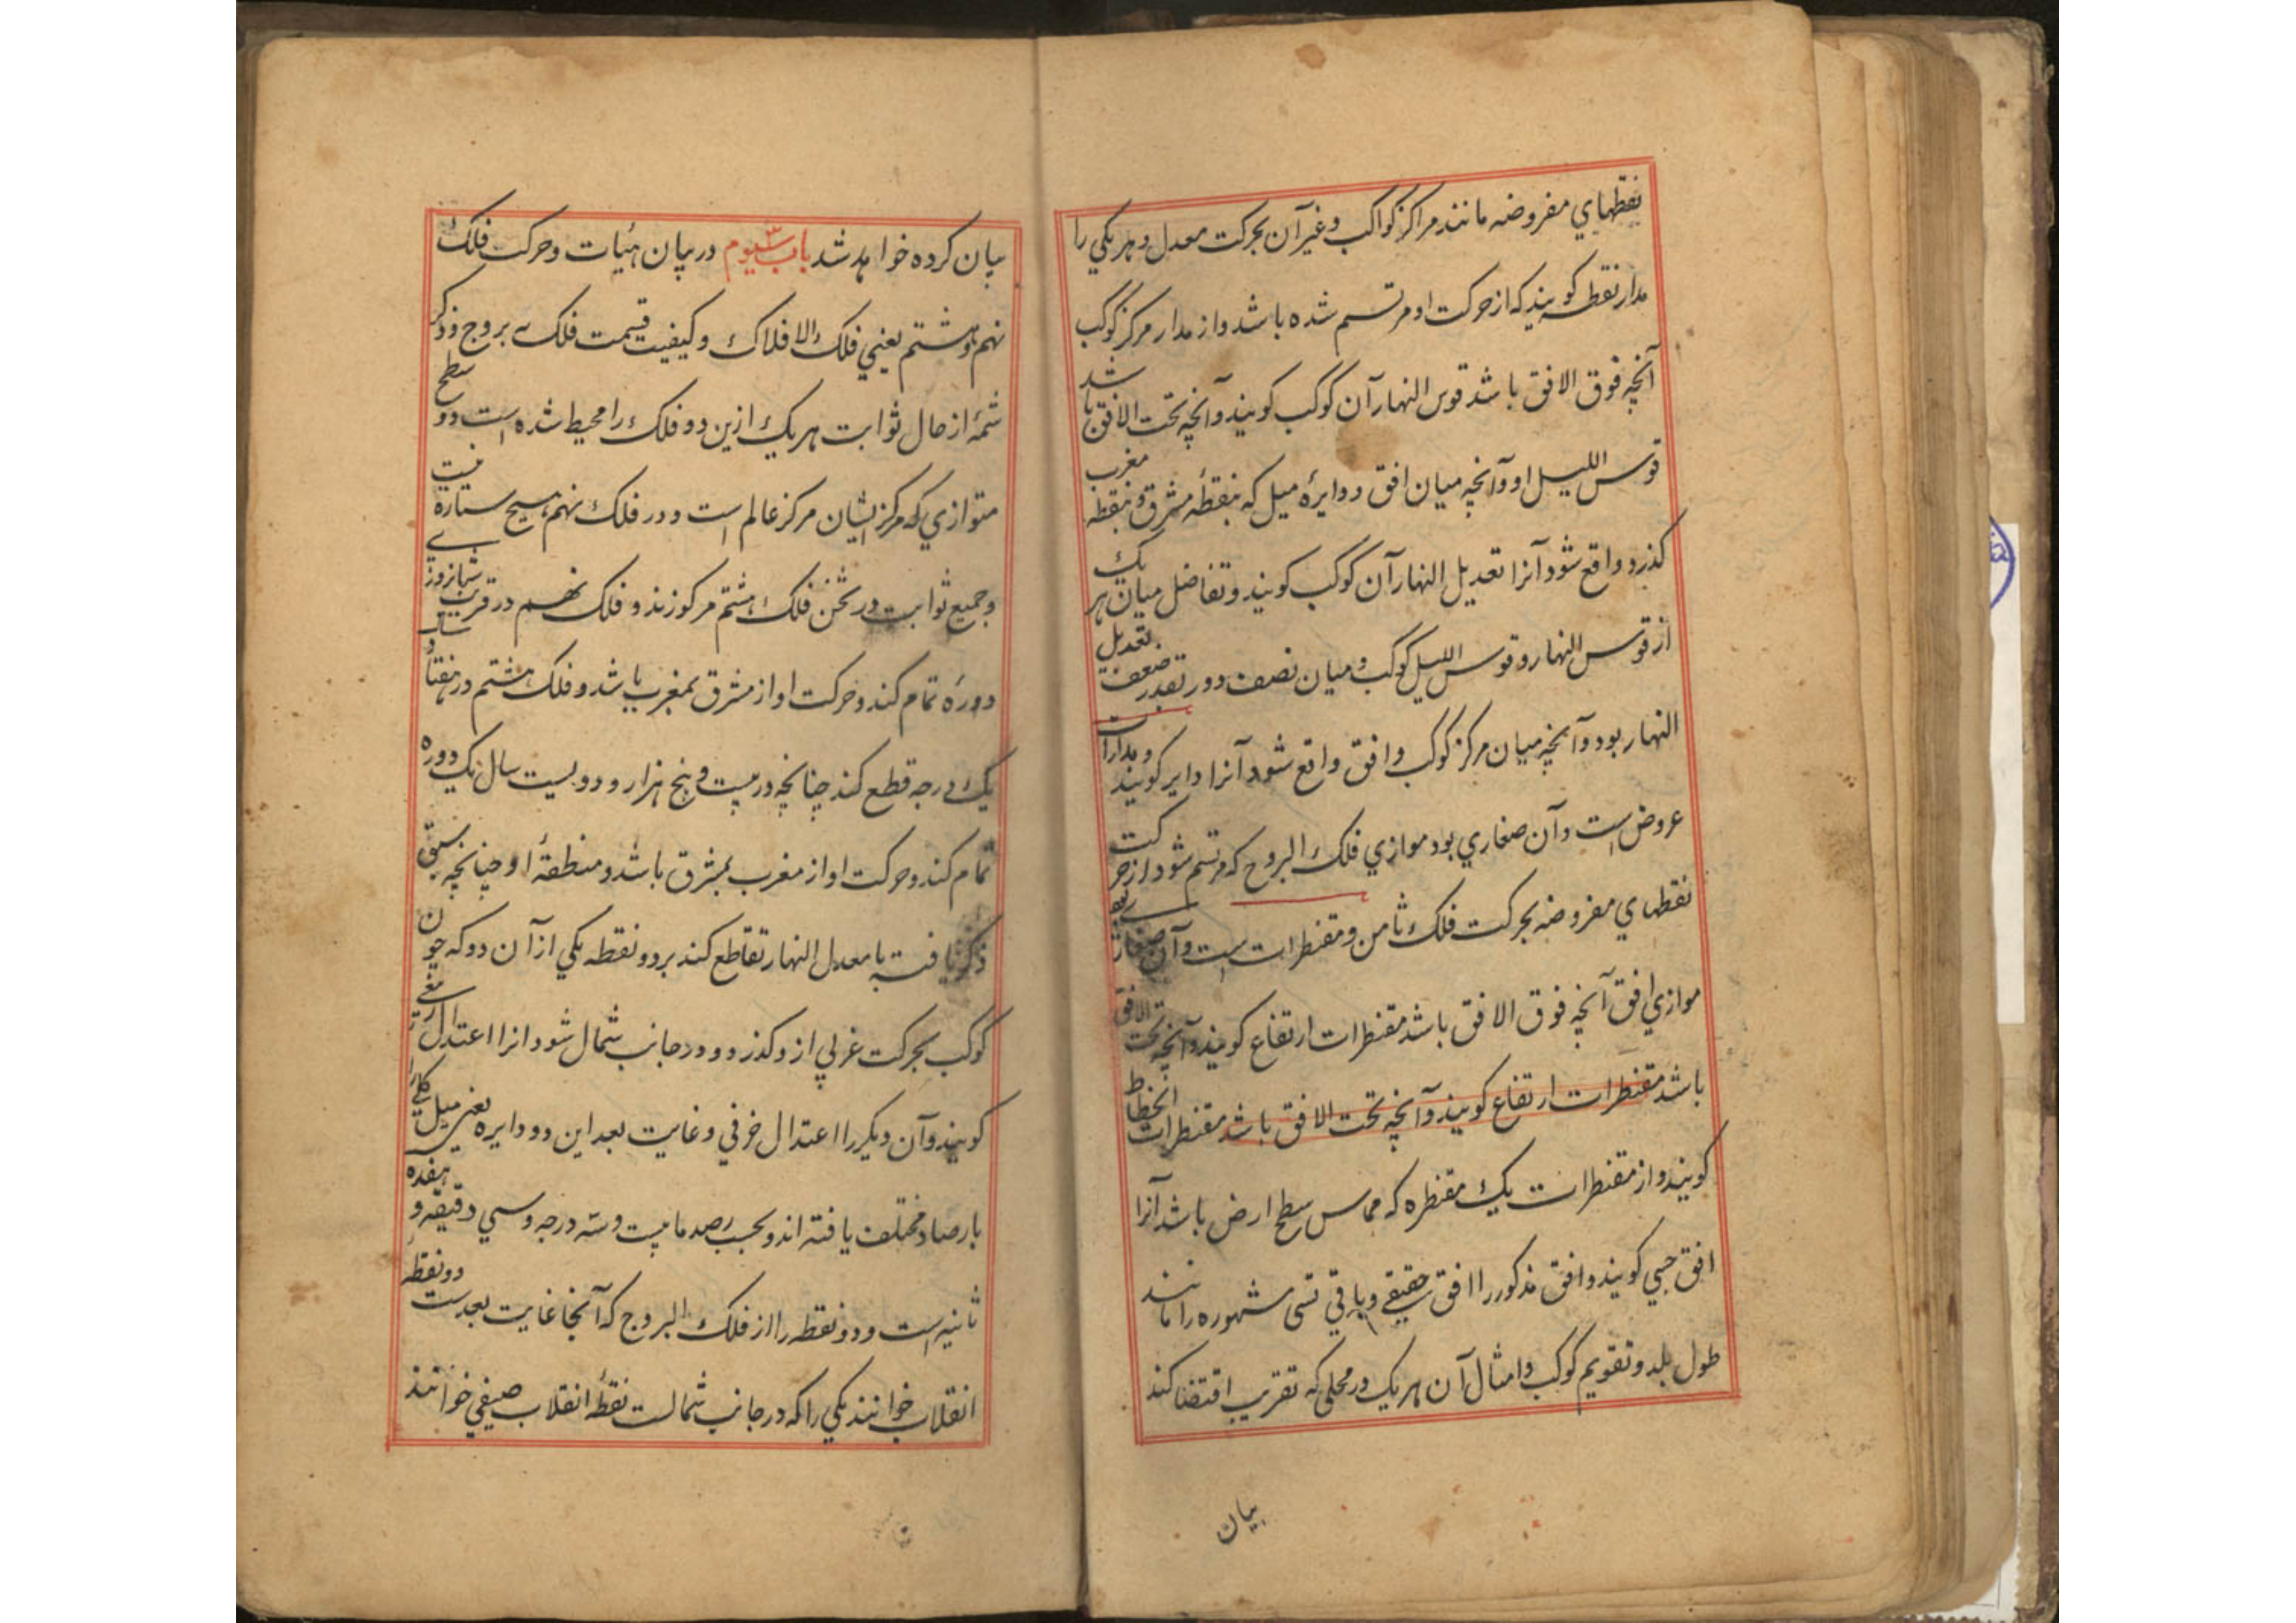 نقطهاي مفروضه مانند مراكز كواكب وغير آن بحركت معدل و هر يكي را
مدار نقطه كويند كه از حركت او مرتسم شده باشد و از مدار مركز كوكب
آنچه فوق الافق باشد قوس النهار آن كوكب كويند و آنچه تحت الافق باشد
قوس الليل او و آنچه ميان افق و دايرهٔ ميل كه بنقطهٔ مشرق و بنقطه مغرب
كذرد واقع شود آنرا تعديل النهار آن كوكب كويند و تفاضل ميان هر يك
از قوس النهار و قوس الليل كوكب و ميان نصف دور بقدر ضعف تعديل
النهار بود و آنچه ميان مركز كوكب و افق واقع شود آنرا داير كويند و مدارات
عروض است و آن صغاري بود موازي فلك البروج كه مرتسم شود از حركت
نقطهاي مفروضه بحركت فلك ثامن و مقنطرات است و آن صغار
موازي افق آنچه فوق الافق باشد مقنطرات ارتفاع كويند و آنچه تحت الافق
باشد مقنطرات ارتفاع كويند و آنچه تحت الافق باشد مقنطرات انحطاط
كويند و از مقنطرات يك مقنطره كه مماس سطح ارض باشد آنرا
افق حسي كويند و افق مذكور را افق حقيقي و باقي قسي مشهوره را مانند
طول بلد و تقويم كوكب و امثال آن هر يك در محلي كه تقريب اقتضا كند
بيان
بيان كرده خواهد شد باب سيوم ٣ در بيان هئات و حركت فلك
نهم و هشتم يعني فلك الافلاك و كيفيت قسمت فلك به بروج و ذكر
شمهٔ از حال ثوابت هر يك ازين دو فلك را محيط شده است دو سطح
متوازي كه مركز ايشان مركز عالم است و در فلك نهم هيچ ستاره نيست
و جميع ثوابت در ثخن فلك هشتم مركوزند و فلك نهم در قريب شبانروزي
دورهٔ تمام كند و حركت او از مشرق بمغرب باشد و فلك هشتم در هفتاد سال
يك درجه قطع كند چنانچه در بيست و پنج هزار و دويست سال يك دوره
تمام كند و حركت او از مغرب بمشرق باشد و منطقهٔ او چنانچه سبق
ذكر يافته با معدل النهار تقاطع كند بر دو نقطه يكي از آن دو كه چون
كوكب بحركت غربي ازو كذرد و در جانب شمال شود انرا اعتدال ربيعي
كويند و آن ديكر را اعتدال خرفي و غايت بعد اين دو دايره يعني ميل كلي را
بارصاد مختلف يافته اند و بحسب رصد ما بيست و سه درجه و سي دقيقه و هفده
ثانيه است و دو نقطه را از فلك البروج كه آنجا غايت بعدست دو نقطه
انقلاب خوانند يكي را كه در جانب شمالست نقطهٔ انقلاب صيفي خوانند